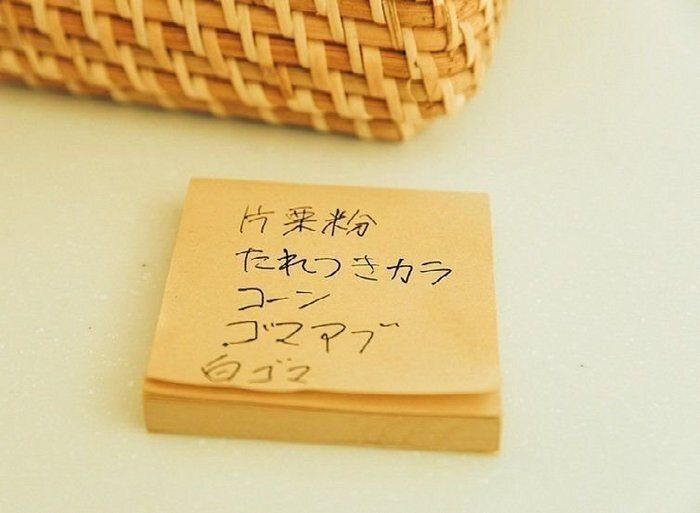 片栗粉
たれつきカラ
コーン
ゴマアブ
白ゴマ